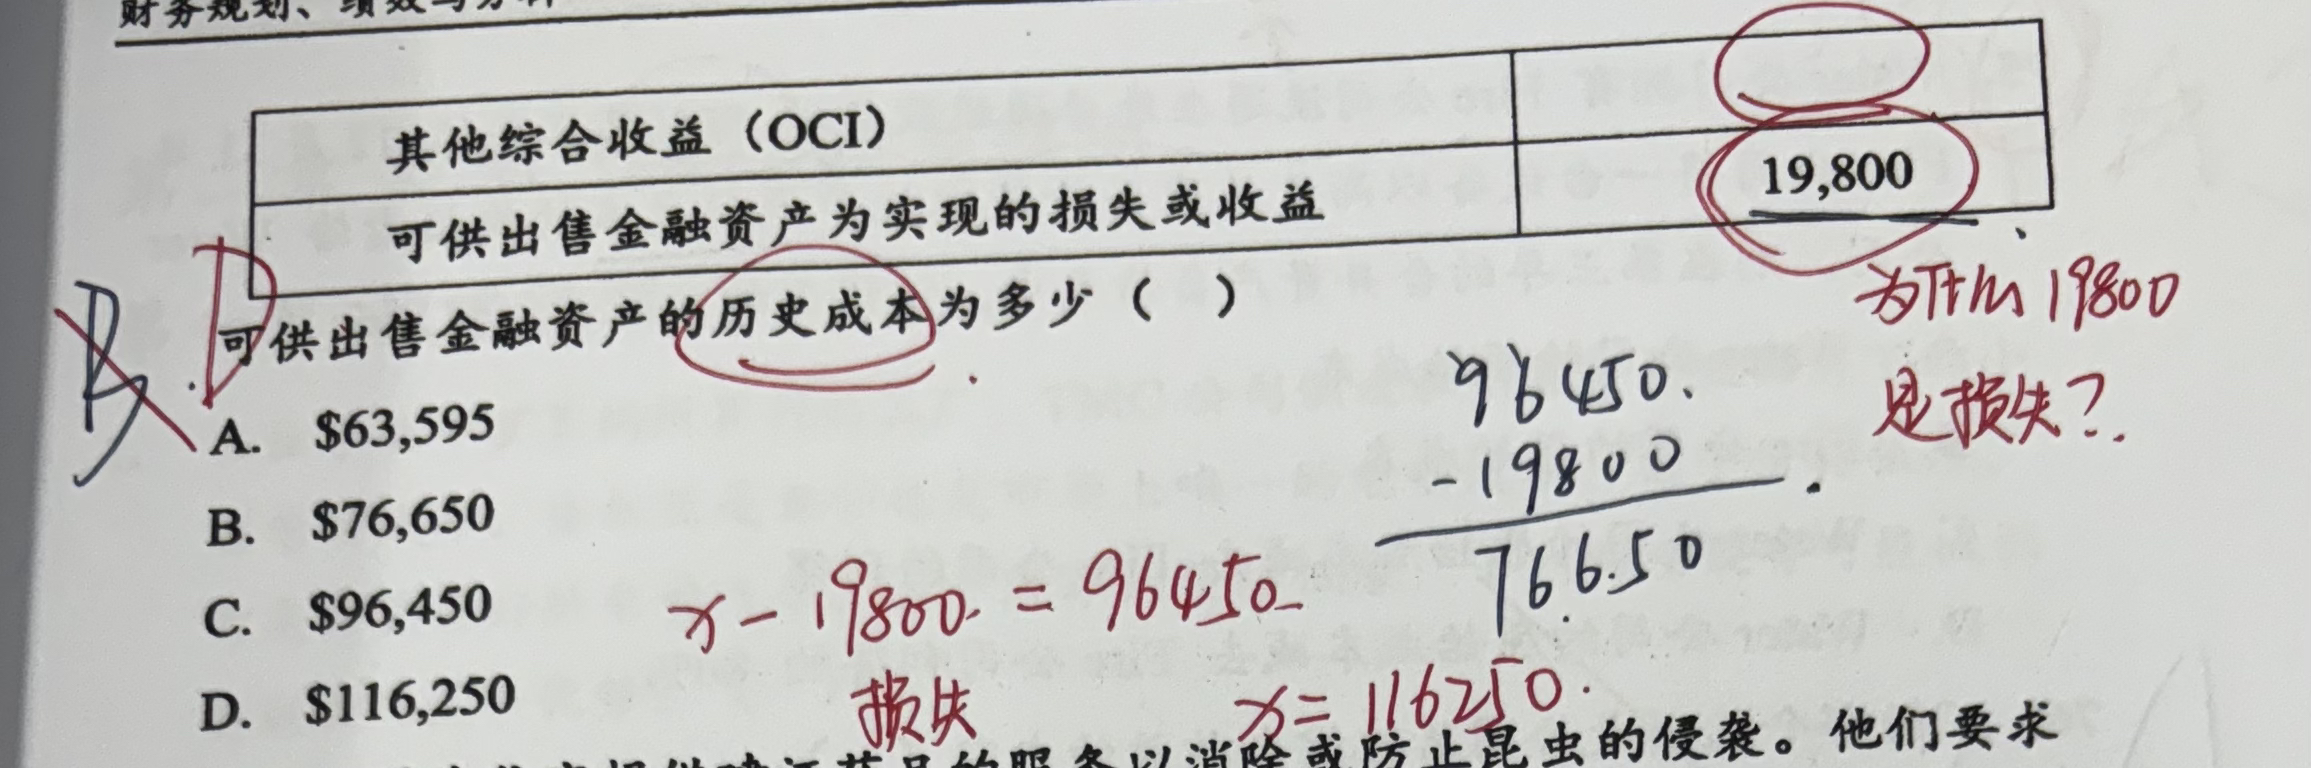 财务规划、绩效与分析
其他综合收益（OCI）
可供出售金融资产为实现的损失或收益 19,800
为什么19800
是损失？
B D
可供出售金融资产的历史成本为多少（ ）
A. $63,595
B. $76,650
C. $96,450
D. $116,250
96450
-19800
76650
x-19800=96450
损失
x=116250
服务以消除或防止昆虫的侵袭。他们要求